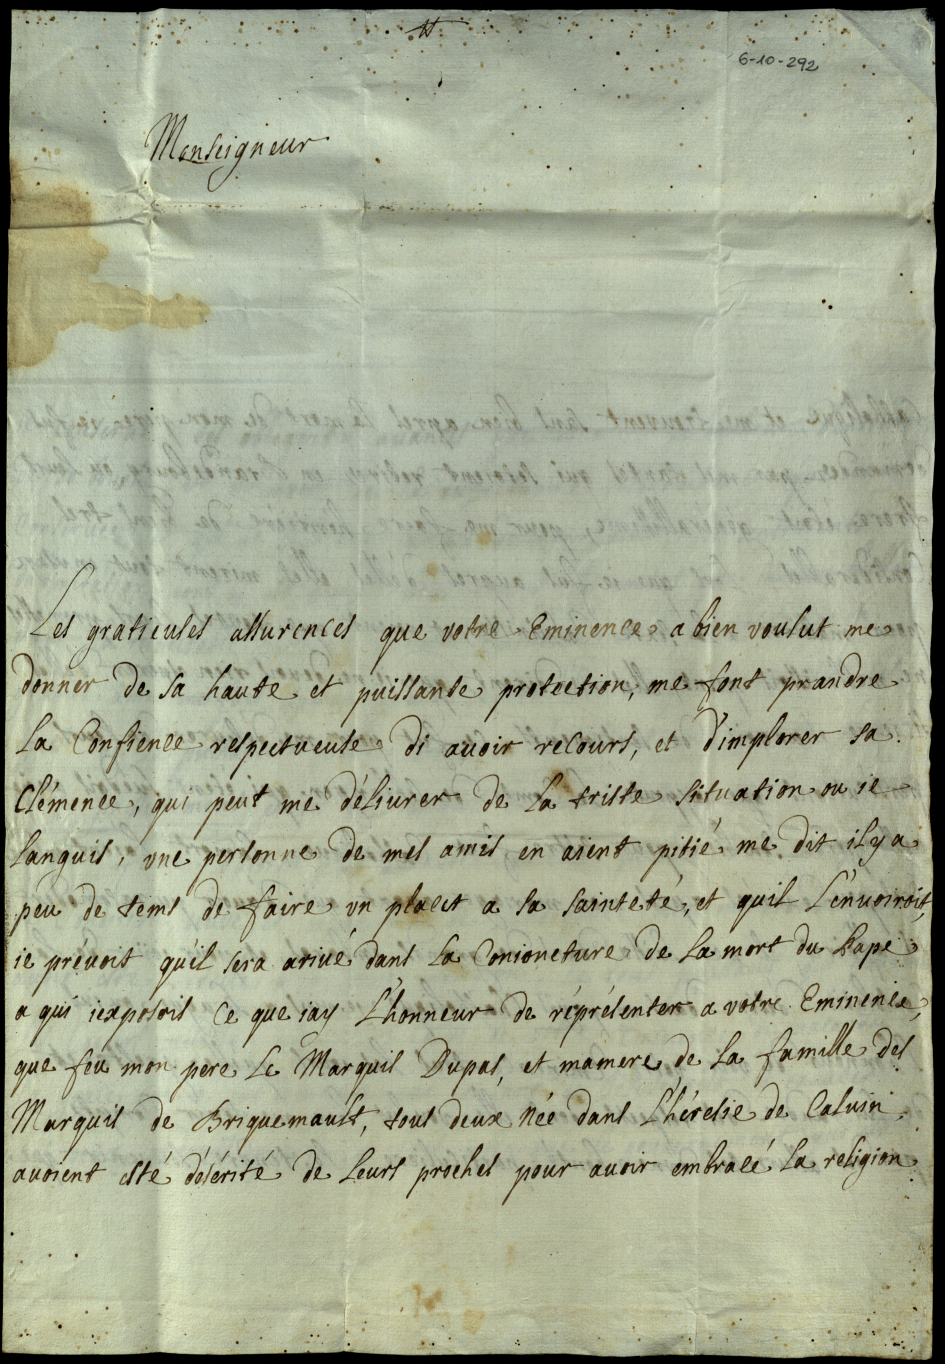 6-10-292
Monseigneur
Les gratieuses assurences que votre Eminence a bien voulut me
donner de sa haute et puissante protection, me font prandre
la Confience respectueuse di avoir recours, et d'implorer sa
Clémence, qui peut me délivrer de la triste situation ou ie
languis, une personne de mes amis en aient pitié me dit il y a
peu de tems de faire un placet a sa sainteté, et quil l'envoiroit,
ie prévoit qu'il sera arivé dans la Conioncture de la mort du Pape
a qui iexposois ce que iay l'honneur de réprésenter a votre Eminence,
que feu mon pere le Marquis Dupas, et mamere de la famille des
Marquis de Briquemault, tous deux née dans l'hérésie de Calvin,
avoient esté désérité de leurs proches pour avoir embracé la religion